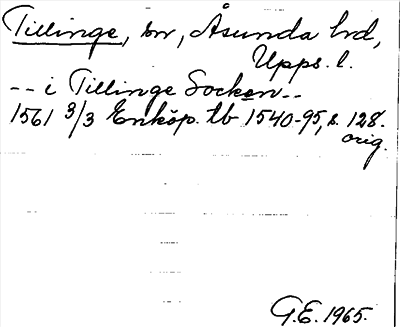 Tillinge, sn, Åsunda hd,
Upps. l.
-- i Tillinge Socken --
1561 3/3 Enköp. tb 1540-95, s. 128.
orig.
G.E. 1965.